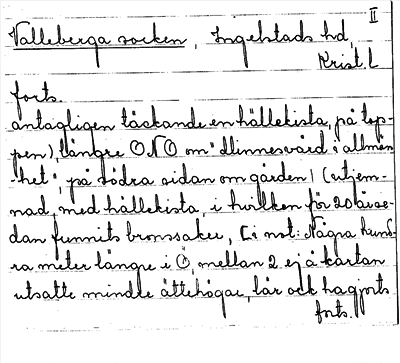 II
Valleberga socken, Ingelstads hd,
Krist. L
forts.
antagligen täckande en hällekista, på top-
pen), längre ONO om "Minnesvård i allmän-
het", på södra sidan om gården) (utjem-
nad, med hällekista, i hvilken för 20 år se-
dan funnits bronssaker, [i not: Några hund-
ra meter längre i Ö, mellan 2 ej å kartan
utsatte mindre ättehögar, lär ock hagjorts
forts.